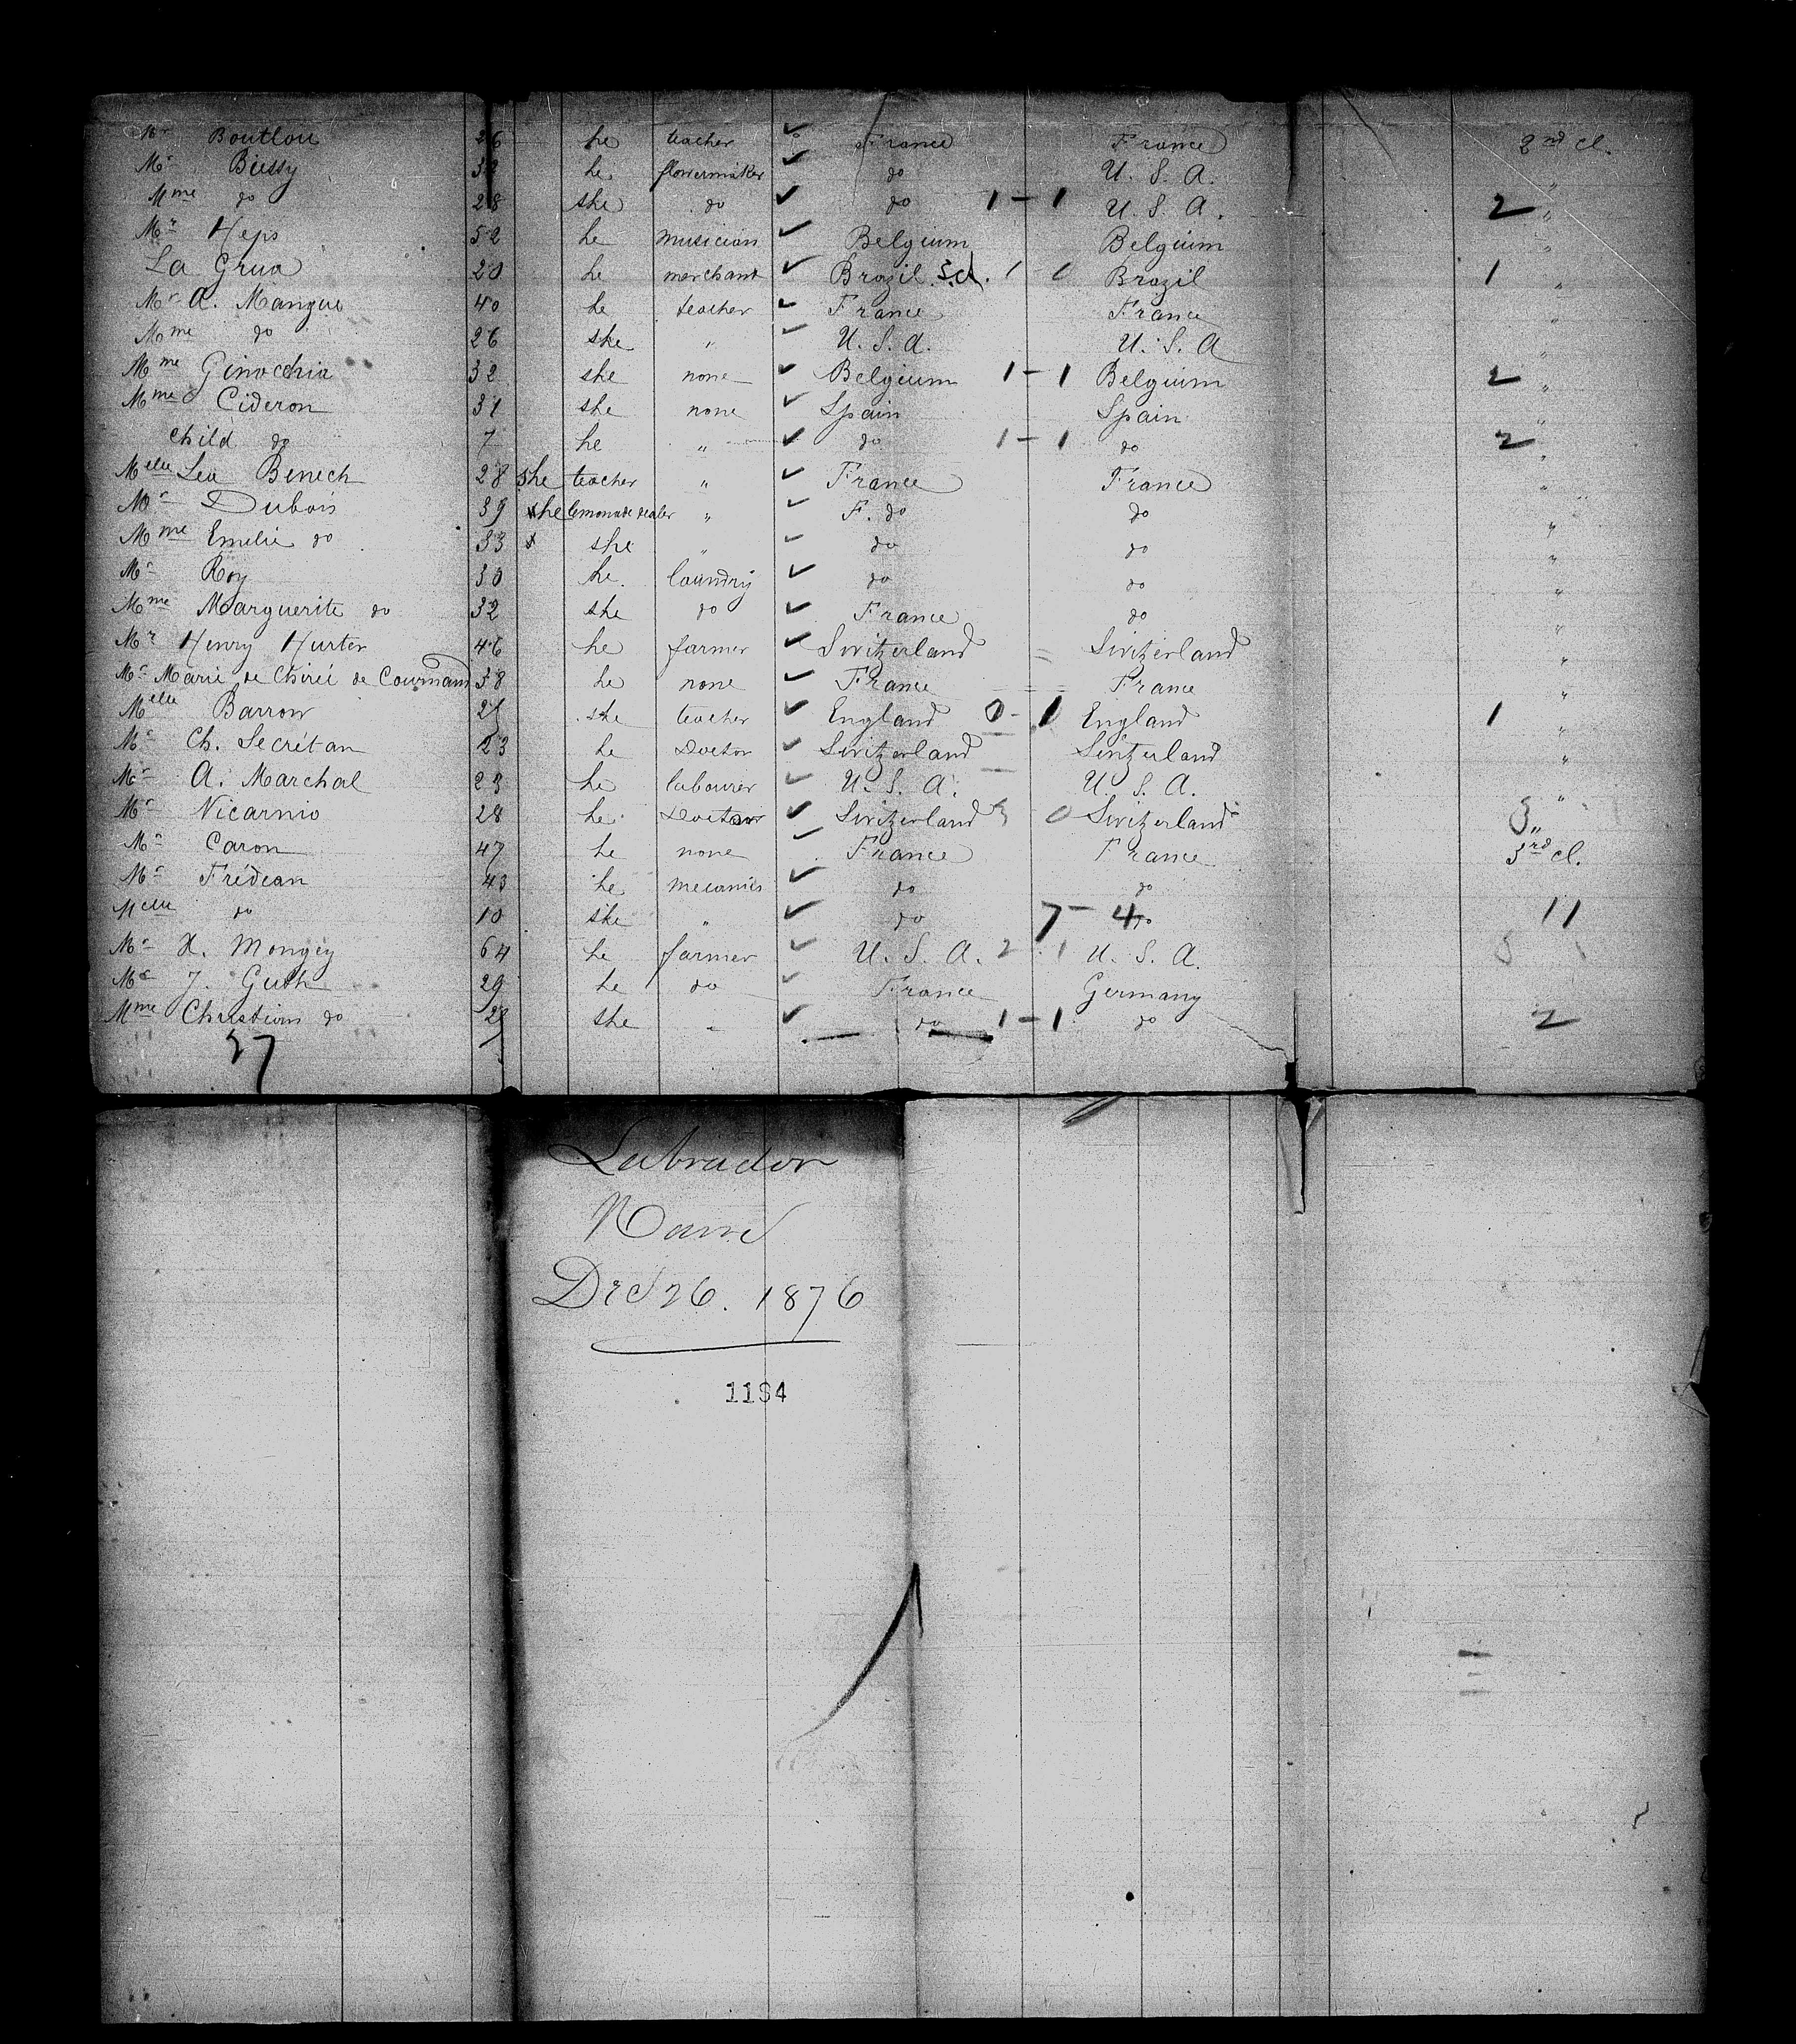 Mr Boutlou 26 he teacher France France 2nd cl.
Mr Biessy 32 he flowermaker do U. S. A. "
Mme do 28 she do do 1-1 U. S. A. 2 "
Mr Heps 52 he musician Belgium Belgium "
La Grua 20 he merchant Brazil S.A. 1 0 Brazil 1 "
Mr A. Mangue 40 he teacher France France "
Mme do 26 she " U. S. A. U. S. A "
Mme Ginocchia 32 she none Belgium 1-1 Belgium 2 "
Mme Cideron 31 she none Spain Spain "
child do 7 he " do 1-1 do 2 "
Melle Lea Benech 28 she teacher " France France "
Mr Dubois 39 he lemonade dealer " F. do do "
Mme Emelie do 33 she " do do "
Mr Roy 30 he laundry do do "
Mme Marguerite do 32 she do France do "
Mr Henry Hurter 46 he farmer Switzerland Switzerland "
Mr Marie de Chirié de Courmand 38 he none France France "
Melle Barrow she teacher England 0-1 England 1 "
Mr Ch. Secrétan 23 he Doctor Switzerland Switzerland "
Mr A. Marchal 23 he labourer U. S. A. U. S. A. "
Mr Nicarnio 28 he Doctor Switzerland 0 Switzerland "
Mr Caron 47 he none France France 3rd cl.
Mr Frédean 43 he mecanics do do
Melle do 10 she " do 7-4 do 11
Mr X. Mongey 64 he farmer U. S. A. 2 1 U. S. A.
Mr J. Guth 29 he do France Germany
Mme Christian do she " do 1-1 do 2
27
Labrador
Dec 26. 1876
1184